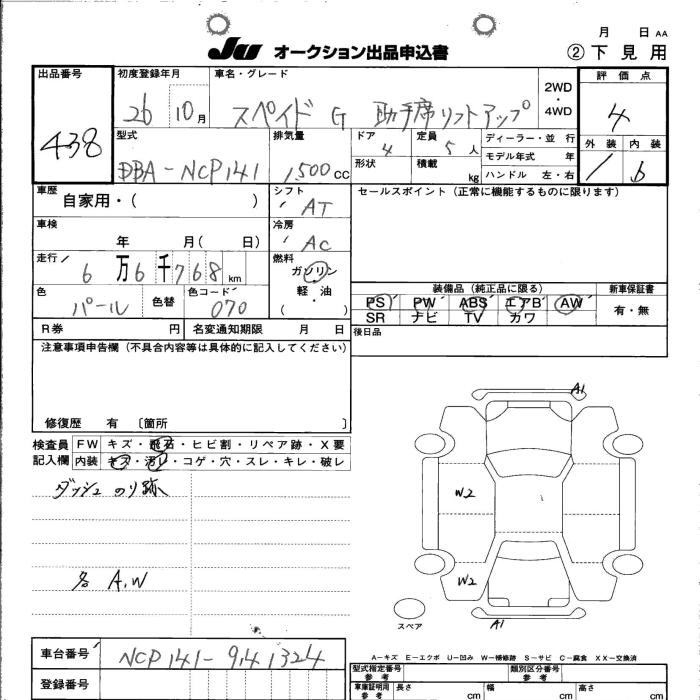 月 日 AA
JU オークション出品申込書 ② 下見用
出品番号 初度登録年月 車名・グレード 2WD・4WD 評価点
438 26 10月 スペイド G 助手席リフトアップ 4
型式 排気量 ドア 4 定員 5人 ディーラー・並行 外装 内装
DBA-NCP141 1,500cc 形状 積載 kg モデル年式 年 b
ハンドル 左・右
車歴 自家用・( ) シフト AT セールスポイント (正常に機能するものに限ります)
車検 年 月( 日) 冷房 AC
走行 6万6千768km 燃料 ガソリン・軽油 ( )
色 パール 色替 色コード 070
装備品 (純正品に限る) 新車保証書
PS PW ABS エアB AW 有・無
SR ナビ TV カワ
R券 円 名変通知期限 月 日 後日品
注意事項申告欄 (不具合内容等は具体的に記入してください)
修復歴 有 〔箇所 〕
検査員 FW キズ・飛石・ヒビ割・リペア跡・X要
記入欄 内装 キズ・汚れ・コゲ・穴・スレ・キレ・破レ
ダッシュ のり跡
各 A.W
A1
W2
W2
A1
スペア
A-キズ E-エクボ U-凹み W-補修跡 S-サビ C-腐食 XX-交換済
車台番号 NCP141-9141324
登録番号
型式指定番号 参考 類別区分番号 参考
車庫証明用 参考 長さ cm 幅 cm 高さ cm